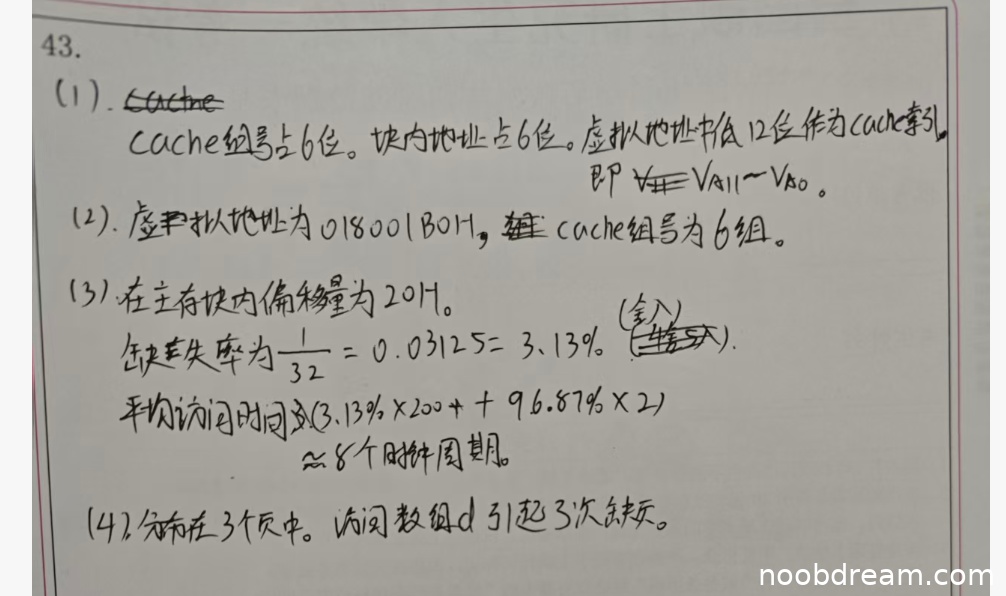 43.
(1). cache
cache组号占6位。块内地址占6位。虚拟地址中低12位作为cache索引,
即 VA11~VA0。
(2). 虚拟地址为 018001B0H, cache组号为6组。
(3). 在主存块内偏移量为20H。
缺失率为 1/32 = 0.03125 = 3.13% (舍入).
平均访问时间 (3.13%×200 + 96.87%×2)
≈8个时钟周期。
(4). 分布在3个页中。访问数组d引起3次缺页。
noobdream.com